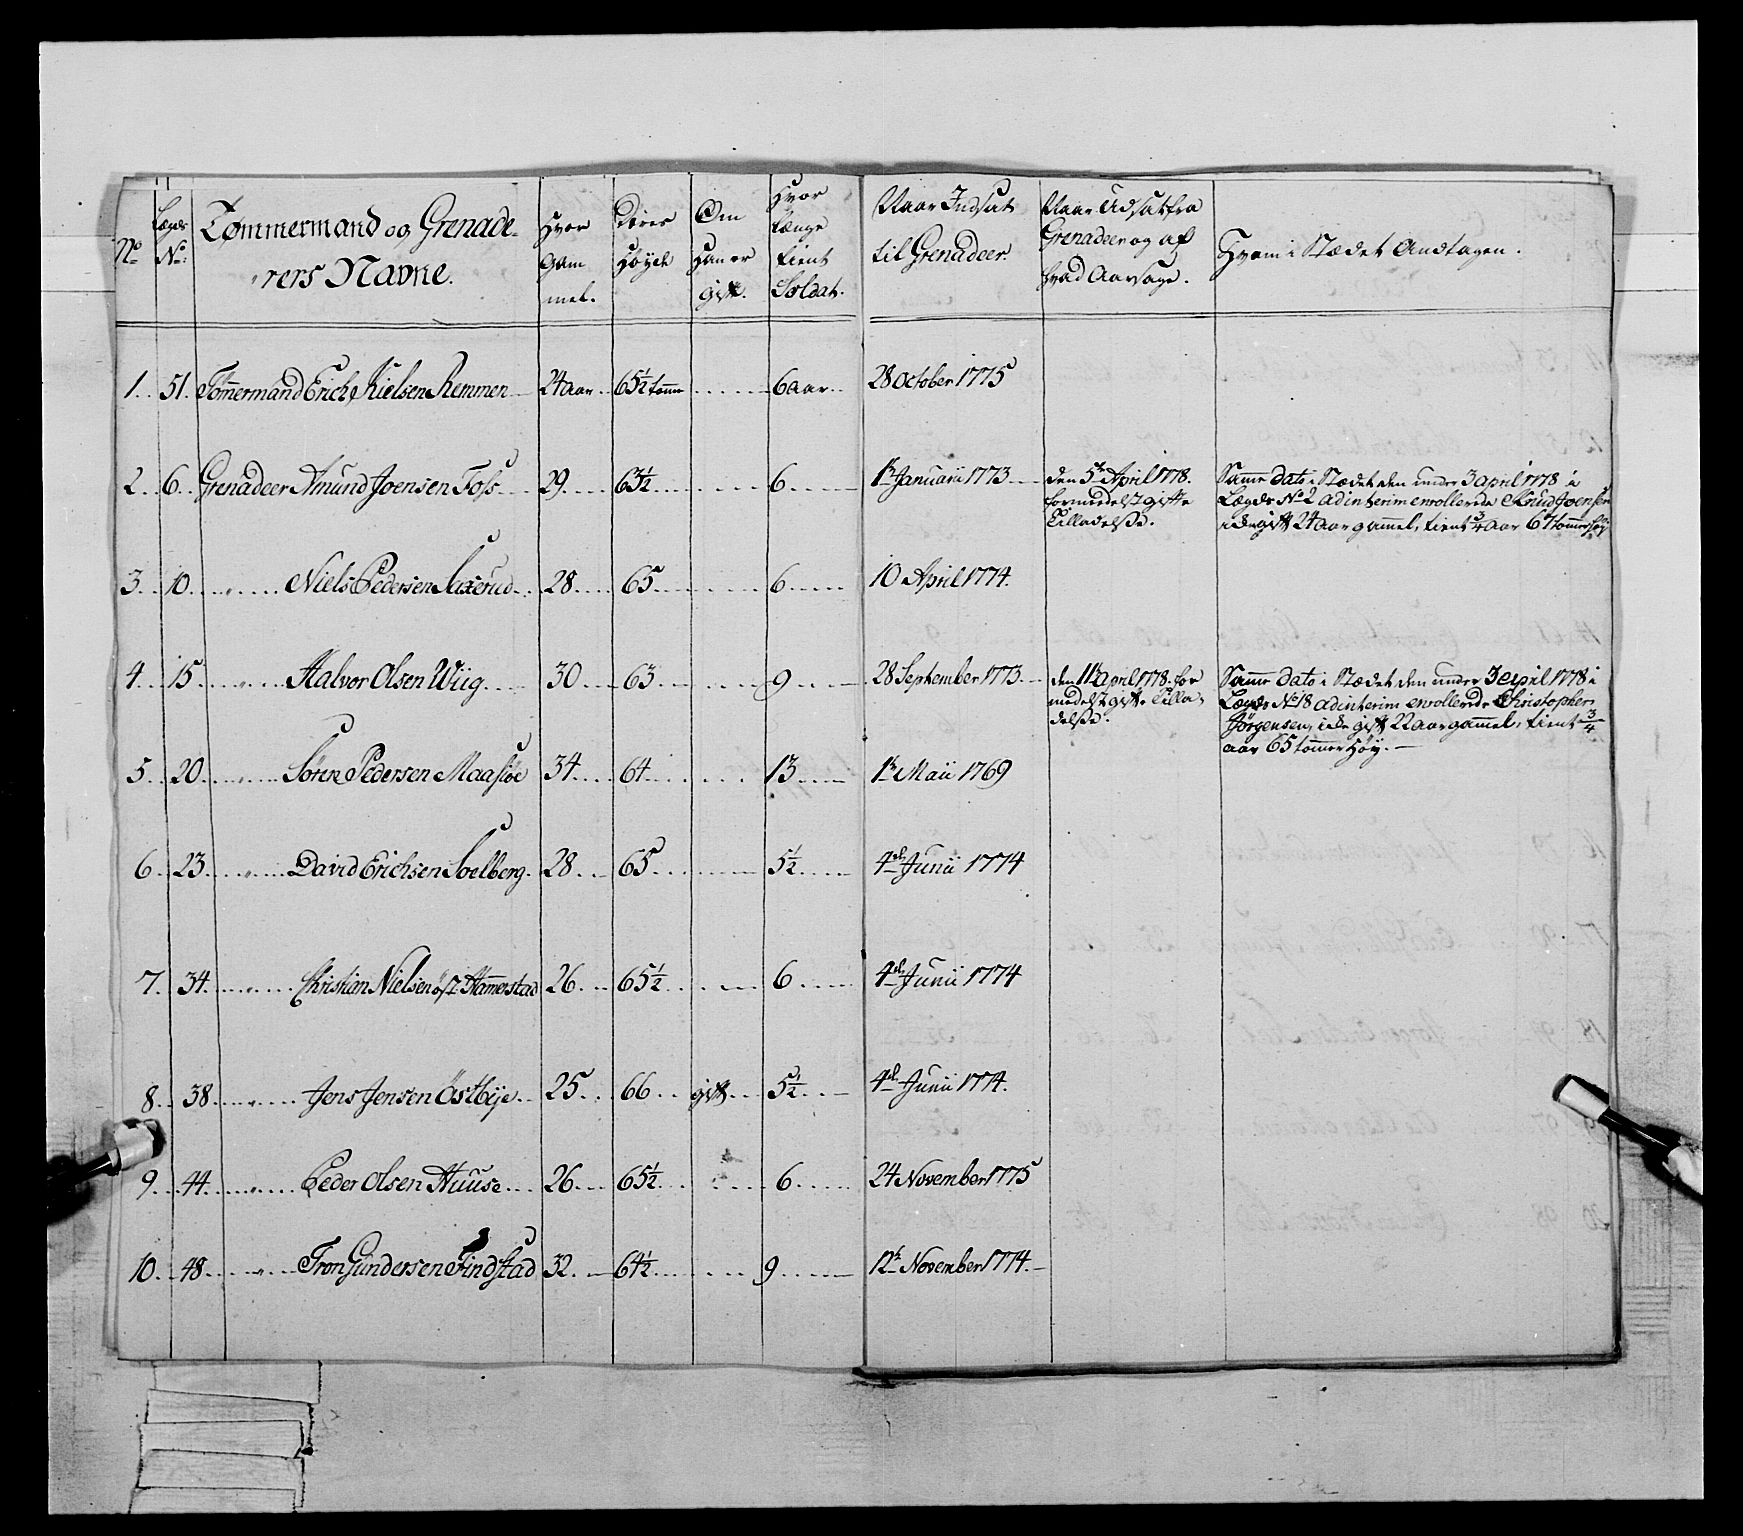 No
Lægds No:
Tømmermand og Grenade-
rers Navne.
Hvor
gam
mel.
Deres
Høyde
Om
Han er
gift.
Hvor
længe
tient
Soldat.
Naar Indsat
til Grenadeer
Naar Udsat fra
Grenadeer og af
hvad Aarsage.
Hvem i Stædet Andtagen.
1. 51. Tømmermand Erich Nielsen Remmen 24 aar 65½ tomme 6 aar 28 October 1775
2 6 Grenadeer Amund Joensen Foss 29 63½ 6 1te Januarii 1773
den 5te April 1778.
formedelst gifte
Tilladelse.
Samme dato i Stædet den under 3 april 1778 i
Lægds No 2 ad interim enrollerede Knud Joensen
icke gift 24 aar gammel, tient ¾ aar 67 tommer høy
3 10 " Niels Pedersen Saxerud 28 65 6 10 April 1774.
4 15 " Halvor Olsen Wiig 30 63 9 28 September 1773
den 11te april 1778. for
medelst gifte Tilla-
delse.
Samme dato i Stædet den under 3 april 1778 i
Lægds No 18 ad interim enrollerede Christopher
Jørgensen, icke gift 22 aar gammel, tient ¾
aar 65 tommer Høy.
5 20 " Søren Pedersen Maasiøe 34 64 13 1te Maii 1769
6 23 " David Erichsen Soelberg 28 65 5½ 4de Junii 1774
7 34 " Christian Nielsen øst Hammerstad 26 65½ 6 4de Junii 1774
8 38 " Jens Jensen Östbÿe 25 66 gift 5½ 4de Junii 1774.
9 44 " Peder Olsen Huuse 26 65½ 6 24 November 1775
10 48 " Tron Gundersen Findstad 32 64½ 9 12te November 1774.